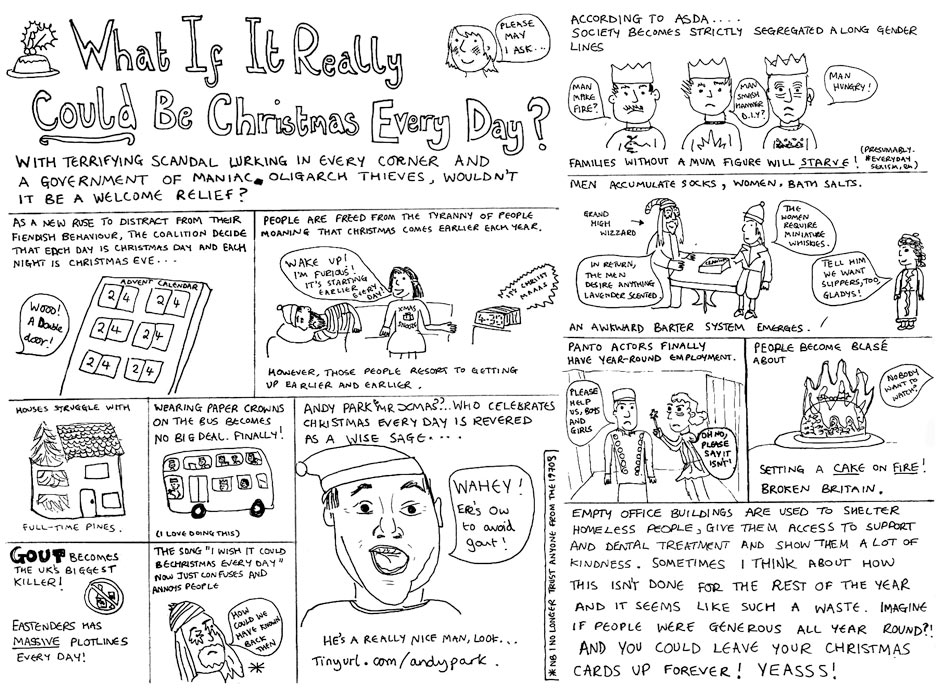 What If It Really
Could Be Christmas Every Day?
PLEASE
MAY
I ASK...
WITH TERRIFYING SCANDAL LURKING IN EVERY CORNER AND
A GOVERNMENT OF MANIAC OLIGARCH THIEVES, WOULDN'T
IT BE A WELCOME RELIEF?
AS A NEW RUSE TO DISTRACT FROM THEIR
FIENDISH BEHAVIOUR, THE COALITION DECIDE
THAT EACH DAY IS CHRISTMAS DAY AND EACH
NIGHT IS CHRISTMAS EVE...
ADVENT CALENDAR
24 24
24 24
24 24
WOOO!
A Double
door!
PEOPLE ARE FREED FROM THE TYRANNY OF PEOPLE
MOANING THAT CHRISTMAS COMES EARLIER EACH YEAR.
WAKE UP!
I'M FURIOUS!
IT'S STARTING
EARLIER
EVERY DAY!
XMAS
SNOOZE
IT'S CHRIST
MAAAS
4:35
HOWEVER, THOSE PEOPLE RESORT TO GETTING
UP EARLIER AND EARLIER.
HOUSES STRUGGLE WITH
FULL-TIME PINES.
WEARING PAPER CROWNS
ON THE BUS BECOMES
NO BIG DEAL. FINALLY!
(I LOVE DOING THIS)
ANDY PARK "MR XMAS"... WHO CELEBRATES
CHRISTMAS EVERY DAY IS REVERED
AS A WISE SAGE....
WAHEY!
ERE'S OW
to avoid
gout!
HE'S A REALLY NICE MAN, LOOK...
Tinyurl.com/andypark.
GOUT BECOMES
THE UK'S BIGGEST
KILLER!
EASTENDERS HAS
MASSIVE PLOTLINES
EVERY DAY!
THE SONG "I WISH IT COULD
BE CHRISTMAS EVERY DAY"
NOW JUST CONFUSES AND
ANNOYS PEOPLE
HOW
COULD WE
HAVE KNOWN
BACK
THEN
*
*NB I NO LONGER TRUST ANYONE FROM THE 1970'S
ACCORDING TO ASDA....
SOCIETY BECOMES STRICTLY SEGREGATED ALONG GENDER
LINES
MAN
MAKE
FIRE?
MAN
SMASH
HAMMER
D.I.Y?
MAN
HUNGRY!
FAMILIES WITHOUT A MUM FIGURE WILL STARVE!
(PRESUMABLY.
#EVERYDAY
SEXISM, EH)
MEN ACCUMULATE SOCKS, WOMEN, BATH SALTS.
GRAND
HIGH
WIZZARD
IN RETURN,
THE MEN
DESIRE ANYTHING
LAVENDER SCENTED
THE
WOMEN
REQUIRE
MINIATURE
WHISKIES.
TELL HIM
WE WANT
SLIPPERS, TOO,
GLADYS!
AN AWKWARD BARTER SYSTEM EMERGES.
PANTO ACTORS FINALLY
HAVE YEAR-ROUND EMPLOYMENT.
PLEASE
HELP
US, BOYS
AND
GIRLS
OH NO,
PLEASE
SAY IT
ISN'T!
PEOPLE BECOME BLASÉ
ABOUT
NOBODY
WANT TO
WATCH?
SETTING A CAKE ON FIRE!
BROKEN BRITAIN.
EMPTY OFFICE BUILDINGS ARE USED TO SHELTER
HOMELESS PEOPLE, GIVE THEM ACCESS TO SUPPORT
AND DENTAL TREATMENT AND SHOW THEM A LOT OF
KINDNESS. SOMETIMES I THINK ABOUT HOW
THIS ISN'T DONE FOR THE REST OF THE YEAR
AND IT SEEMS LIKE SUCH A WASTE. IMAGINE
IF PEOPLE WERE GENEROUS ALL YEAR ROUND?!
AND YOU COULD LEAVE YOUR CHRISTMAS
CARDS UP FOREVER! YEASSS!